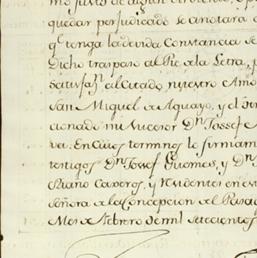 quedar perjudicado se anotara
q.e tenga la devida Constancia
Dicho traspaso al Pie de la Letra, p
satisfaz.n al citado nuestro Amo
San Miguel de Aguayo, y el
cionado mi Sucesor D.n Jossef
En cuios terminos lo firmam
testigos D.n Jossef Guomes, y D.n
y Residentes en
señora de la Concepcion del
Mes de Febrero de mil setecientos